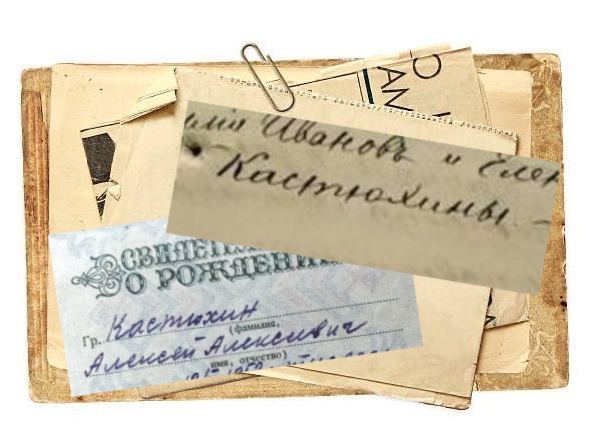 Ивановъ и Елен
Кастюхины
СВИДЕТЕЛ
О РОЖДЕНИ
Гр. Кастюхин
(фамилия,
Алексей Алексеевич
имя, отчество)